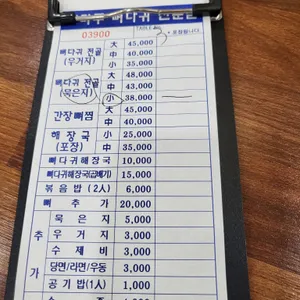 뼈다귀 전문점
TABLE No.
03900
* 포장됩니다
뼈다귀 전골 (우거지) 大 45,000
中 40,000
小 35,000
뼈다귀 전골 (묵은지) 大 48,000
中 43,000
小 38,000
간장뼈찜 大 45,000
中 40,000
해장국 (포장) 小 25,000
中 35,000
뼈다귀해장국 10,000
뼈다귀해장국(곱빼기) 15,000
볶음밥 (2人) 6,000
뼈 추가 20,000
추가
묵은지 5,000
우거지 3,000
수제비 3,000
당면/라면/우동 3,000
공기밥(1人) 1,000